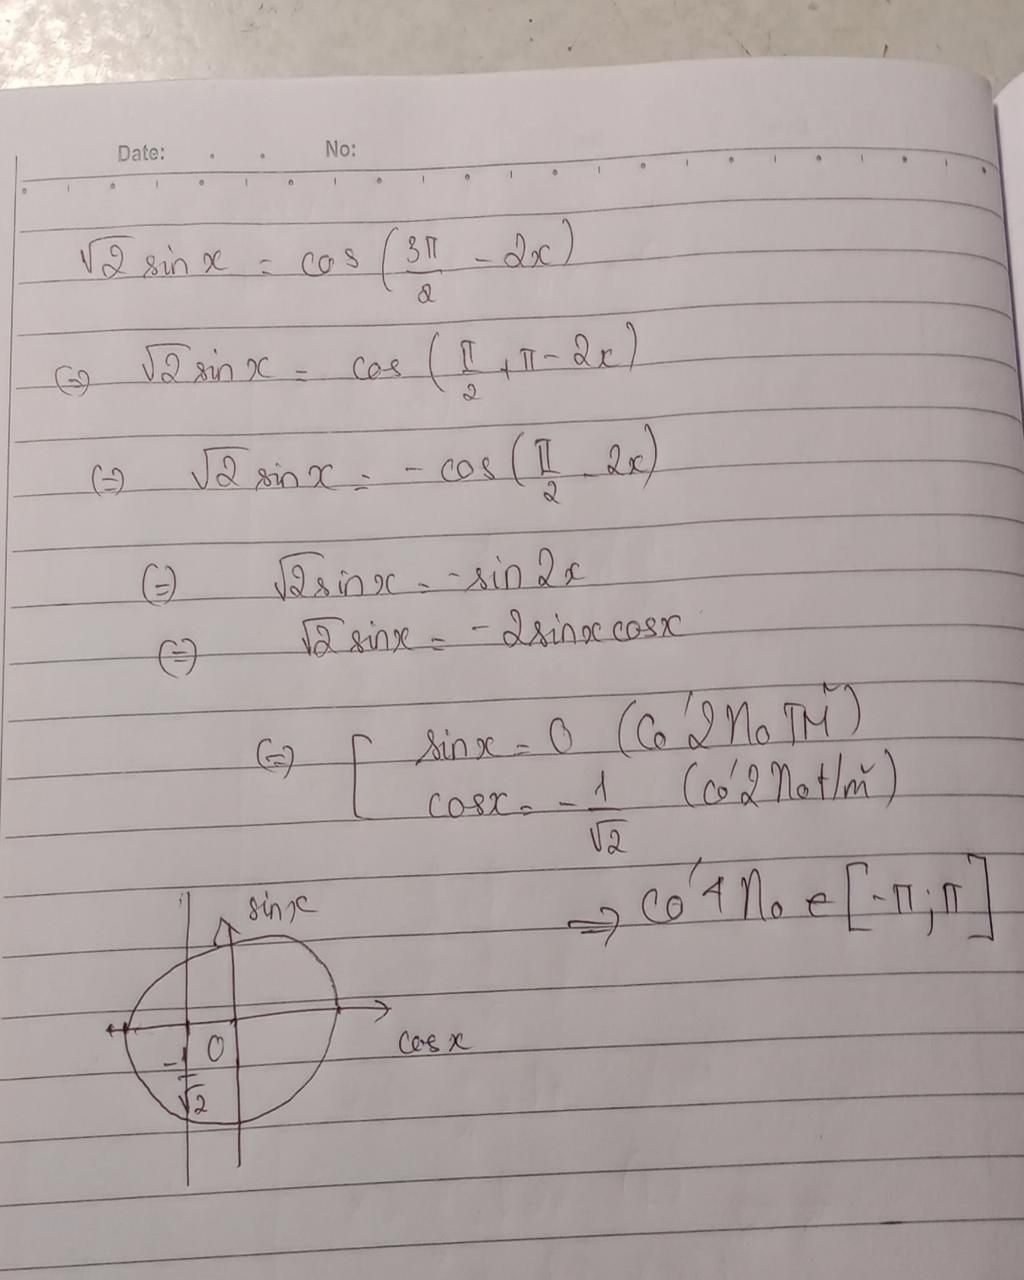 Date: . . No:
√2 sin x = cos (3π/2 - 2x)
(=) √2 sin x = cos (π/2 + π - 2x)
(=) √2 sin x = - cos (π/2 - 2x)
(=) √2 sin x = - sin 2x
(=) √2 sin x = - 2 sin x cos x
(=) [ sin x = 0 (Có 2 No TM~)
cos x = - 1/√2 (Có 2 No t/m~)
=> Có 4 No e [-π; π]
sin x
cos x
O
-1/√2